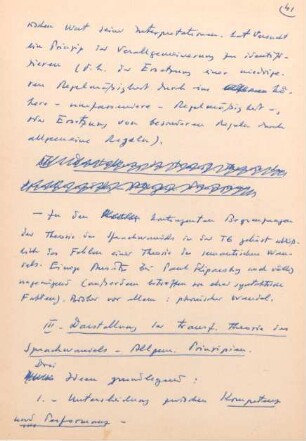 41
kschen Wert seiner Interpretationen. Hat Versucht
ein Prinzip der Verallgemeinerung zu identifi-
zieren (d.h. der Ersetzung einer niedrige-
ren Regelmäßigkeit durch eine hö-
here – umfassendere – Regelmäßigkeit –,
oder Ersetzung von besonderen Regeln durch
allgemeine Regeln).
– Zu den kontingenten Begrenzungen
der Theorie des Sprachwandels in der TG gehört schließ-
lich das Fehlen einer Theorie des semantischen Wan-
dels. Einige Ansätze bei Paul Kiparsky sind völlig
ungenügend (außerdem betreffen sie eher syntaktische
Fakten). Bisher vor allem: phonischer Wandel.
III – Darstellung der transf. Theorie des
Sprachwandels – Allgem. Prinzipien.
Drei
Ideen grundlegend:
1. – Unterscheidung zwischen Kompetenz
und Performanz –